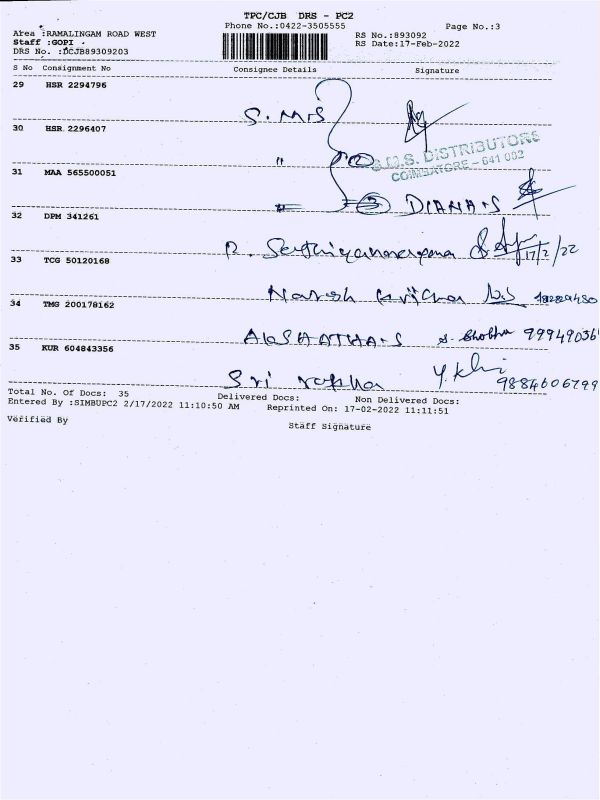 TPC/CJB DRS - PC2
Phone No.:0422-3505555
Page No.:3
Area :RAMALINGAM ROAD WEST
Staff :GOPI
DRS No. :DCJB89309203
RS No.:893092
RS Date:17-Feb-2022
S No Consignment No Consignee Details Signature
29 HSR 2294796
S.M.S
30 HSR 2296407
" (2)
S.M.S. DISTRIBUTORS
COIMBATORE - 641 002
31 MAA 565500051
" (3) DIANA.S
32 DPM 341261
17/2/22
33 TCG 50120168
Naresh
34 TMG 200178162
AKSHATHA.S S. Shobha
35 KUR 604843356
Sri 9884606799
Total No. Of Docs: 35 Delivered Docs: Non Delivered Docs:
Entered By :SIMBUPC2 2/17/2022 11:10:50 AM Reprinted On: 17-02-2022 11:11:51
Verified By
Staff Signature